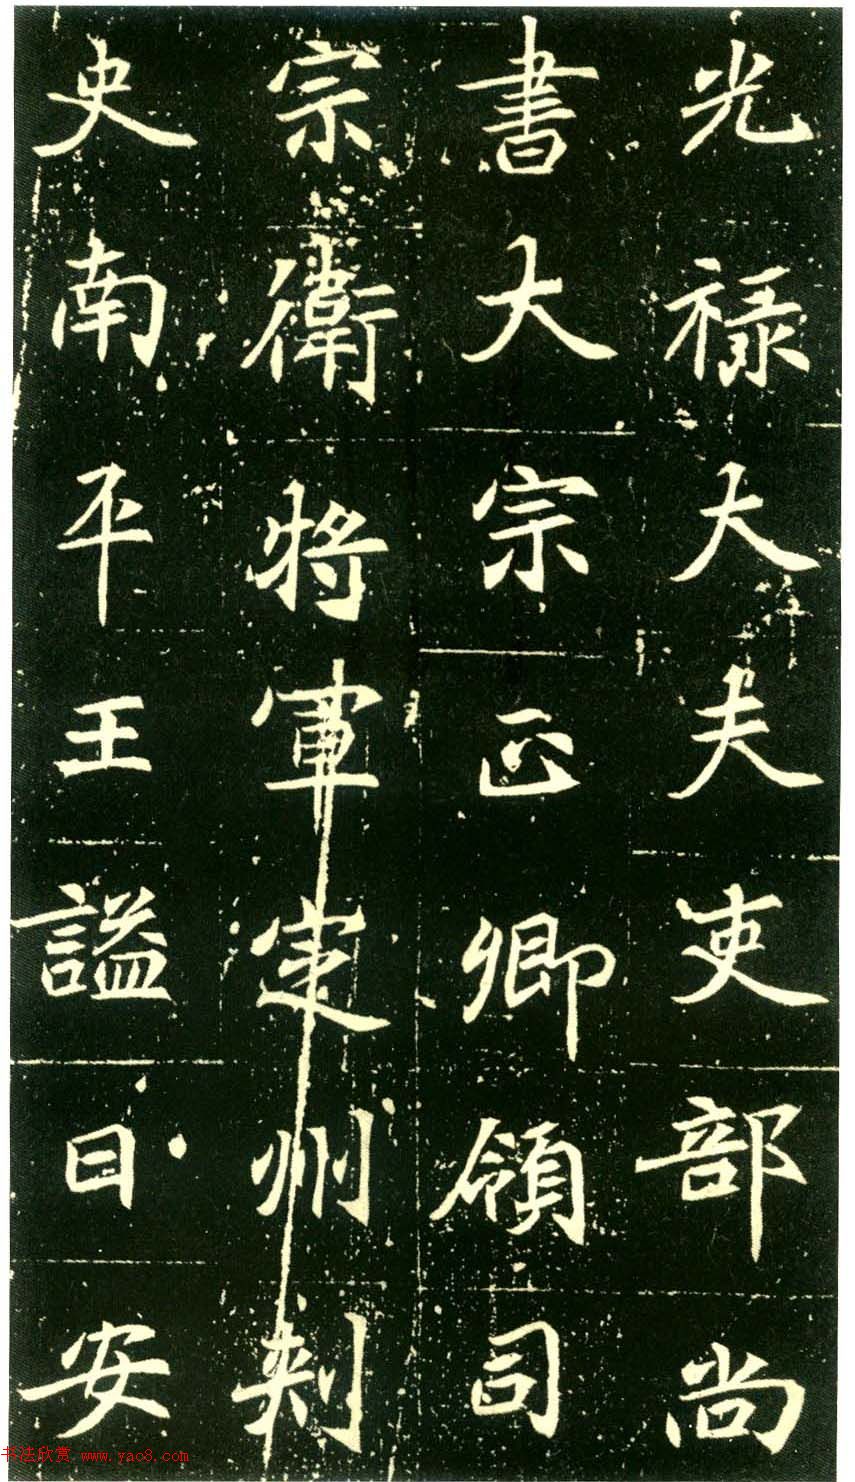 光祿大夫吏部尚
書大宗正卿領司
宗衛將軍定州刺
史南平王諡曰安
书法欣赏 www.yac8.com